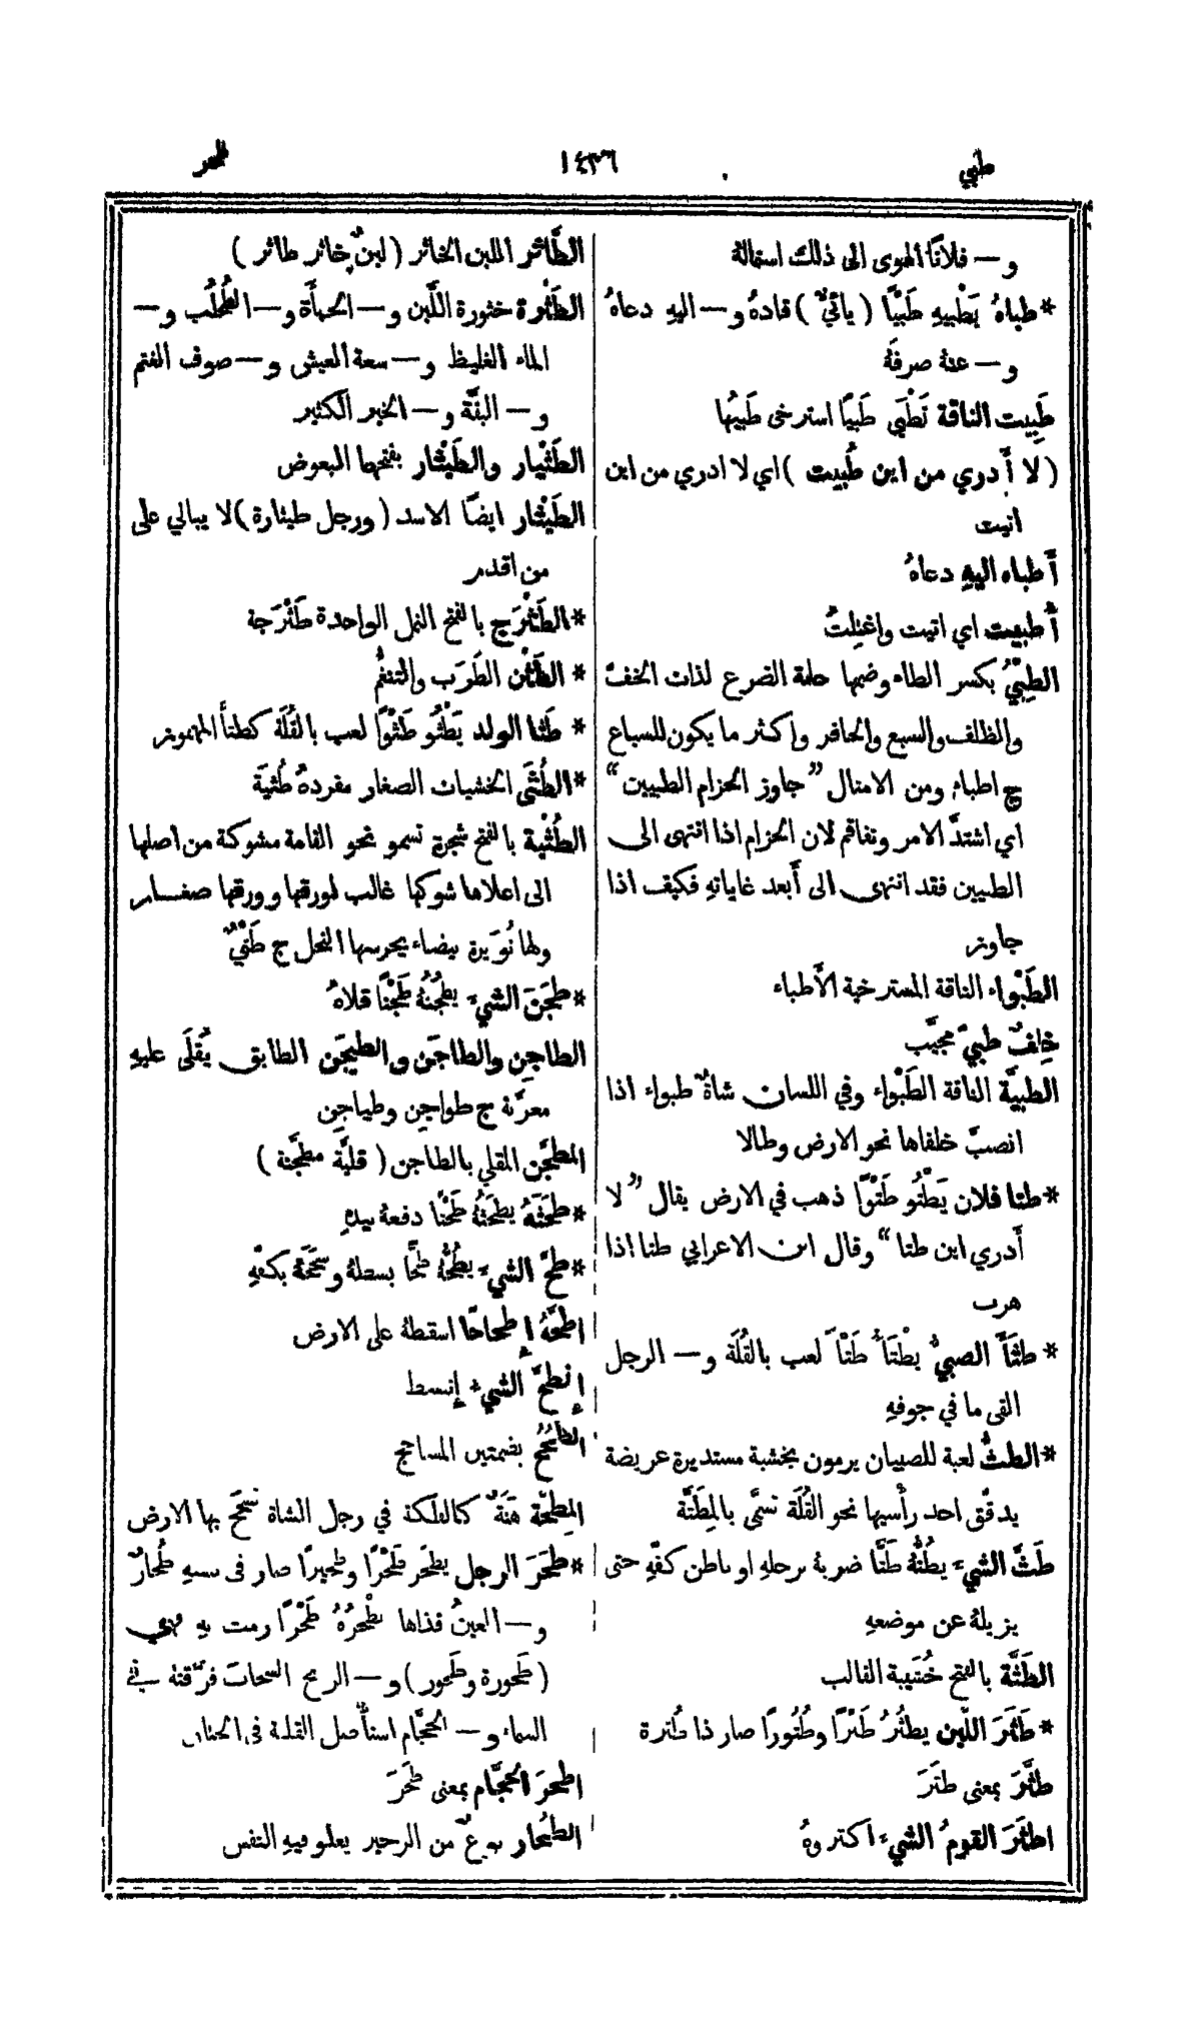 طبي
١٤٣٦
طحر
و— فلانًا الهوى الى ذلك استمالهُ
* طباهُ يَطْبيهِ طَبْيًا ( يائيٌّ ) قادهُ و— اليهِ دعاهُ
و— عنهُ صرفَهُ
طَبِيت الناقة تَطْبَى طَبًا استرخى طَبْيُها
( لا أَدري من اين طُبيت ) اي لا ادري من اين
اتيت
أَطباه اليهِ دعاهُ
أُطبيت اي اتيت واغتِلتُ
الطِبْيُ بكسر الطاء وضمها حلمة الضرع لذات الخفّ
والظلف والسبع والحافر واكثر ما يكون للسباع
ج اطباء ومن الامثال ”جاوز الحزام الطبيين“
اي اشتدَّ الامر وتفاقم لان الحزام اذا انتهى الى
الطبيين فقد انتهى الى أَبعد غاياتهِ فكيف اذا
جاوز
الطَبْواء الناقة المسترخية الأَطباء
خِلفٌ طبيٌّ مجيَّب
الطبيَّة الناقة الطَبْواء وفي اللسان شاةٌ طبواء اذا
انصبَّ خلفاها نحو الارض وطالا
* طتا فلان يَطْتُو طَتْوًا ذهب في الارض يقال ”لا
أَدري اين طتا“ وقال ابن الاعرابي طتا اذا
هرب
* طثَأَ الصبيُّ يطْثَأُ طَثْأً لعب بالقُلَة و— الرجل
القى ما في جوفهِ
* الطثُّ لعبة للصبيان يرمون بخشبة مستديرة عريضة
يدقَّق احد رأْسيها نحو القُلَة تسمَّى بالمِطَثَّة
طَثَّ الشيءَ يطُثُّهُ طَثًّا ضربهُ برجلهِ او باطن كفّهِ حتى
يزيلهُ عن موضعهِ
الطَثَّة بالفتح خُشَيبة القالب
* طَثَرَ اللَبن يطثُرُ طَثْرًا وطُثُورًا صار ذا طَثْرة
طثَّرَ بمعنى طَثَرَ
اطثَرَ القومُ الشيءَ اكثروهُ
الطَّاثر اللبن الخاثر ( لبنٌ خاثر طاثر )
الطَثْرة خثورة اللَّبن و— الحمأَة و— الطُحلُب و—
الماء الغليظ و— سعة العيش و— صوف الغنم
و— البنَّة و— الخير الكثير
الطَثْيار والطَيْثار بفتحها البعوض
الطَيْثار ايضًا الاسد ( ورجل طيثارة ) لا يبالي على
من اقدم
* الطَثْرَج بالفتح النمل الواحدة طَثْرَجة
* الطَثْن الطَرَب والتنعُّم
* طَثا الولد يَطْثُو طَثْوًا لعب بالقُلَة كطثأَ المهموز
* الطُثَى الخشبات الصغار مفردهُ طُثيَة
الطُثْية بالفتح شجرة تسمو نحو القامة مشوكة من اصلها
الى اعلاها شوكها غالب لورقها وورقها صغـــار
ولها نُوَيرة بيضاء يجرسها النحل ج طَثْيٌ
* طجَنَ الشيءَ يطجُنُهُ طَجْنًا قلاهُ
الطاجِن والطاجَن والطيجَن الطابق يُقلَى عليهِ
معرَّبة ج طواجِن وطياجِن
المُطجَّن المقلي بالطاجن ( قليَّة مطجَّنة )
* طحَثَهُ يطحَثُهُ طَحْثًا دفعهُ بيدهِ
* طحَّ الشيءَ يطُحُّهُ طحًّا بسطهُ وسَحَّجَهُ بكفّهِ
اطحَّهُ إِطحاحًا اسقطهُ على الارض
إِنطحَّ الشيءُ إِنبسط
الطُحُح بضمتين المساحج
المِطَحَّة هَنَةٌ كالفَلكة في رجل الشاة تسحَج بها الارض
* طحَرَ الرجل يطحَر طَحْرًا وطحيرًا صار في نفسهِ طُحارٌ
و— العينُ قذاها تطْحَرُهُ طَحْرًا رمت بهِ فهي
( طَحورة وطَحور ) و— الريح السحابَ فرَّقتهُ في
السماء و— الحجَّام استأْصل القلفة في الختان
اطحرَ الحجَّام بمعنى طحَرَ
الطُحار نوعٌ من الزحير يعلو فيهِ النفس